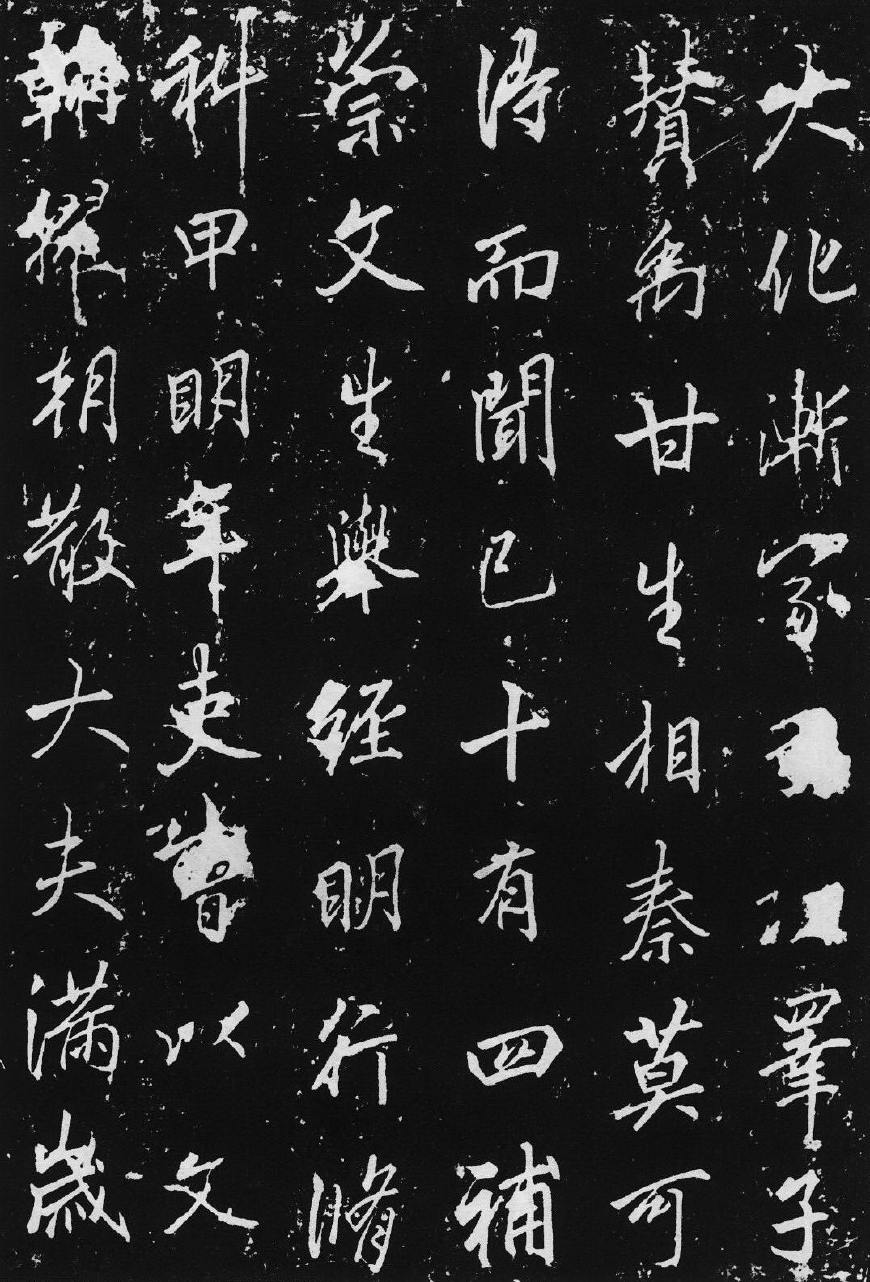 大化漸家睪子
賛禹甘生相秦莫可
得而聞已十有四補
崇文生舉經明行脩
科甲明年吏曹以文
翰擢朝散大夫滿歲